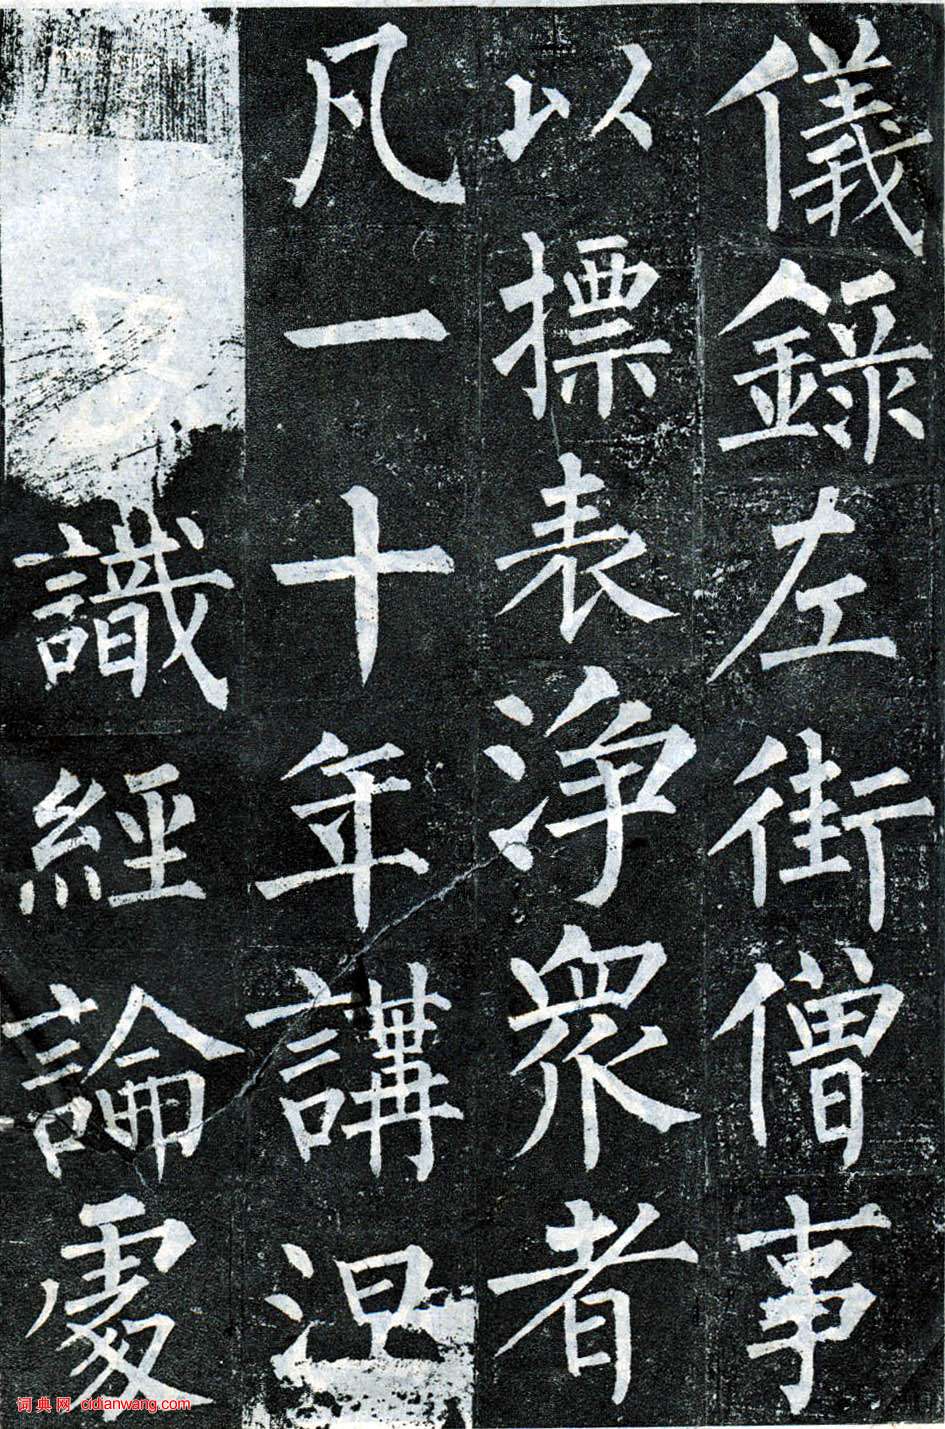 儀錄左街僧事
以摽表淨衆者
凡一十年講涅
識經論處
词典网 cidianwang.com